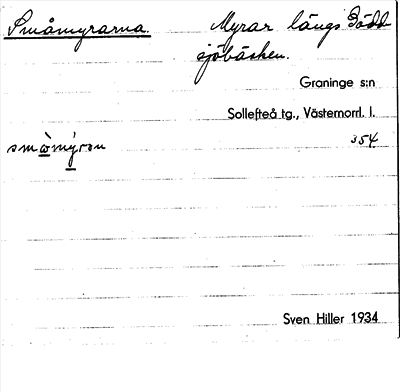 Småmyrarna. Myrar längs Sädd
sjöbäcken.
Graninge s:n
Sollefteå tg., Västernorrl. l.
småmýran 354
Sven Hiller 1934